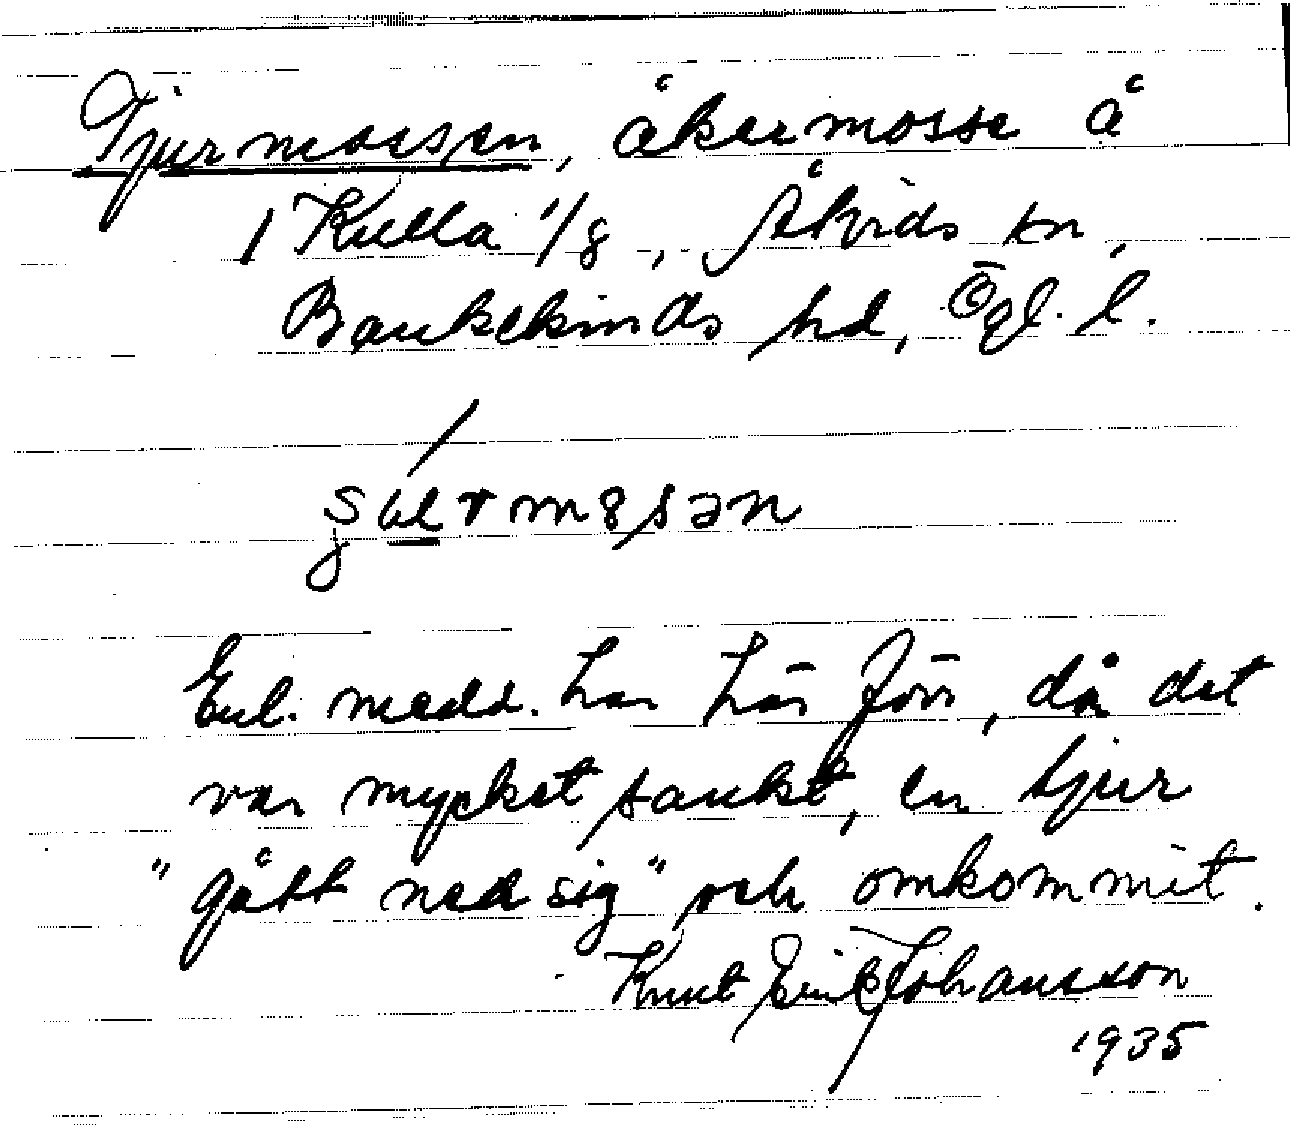 Tjurmossen, åkermosse å
1 Kulla 1/8, Åtvids sn,
Bankekinds hd, Ögl. l.
Enl. medd. har här förr, då det
var mycket sankt, en tjur
"gått ned sig" och omkommit.
Knut Erik Johansson
1935